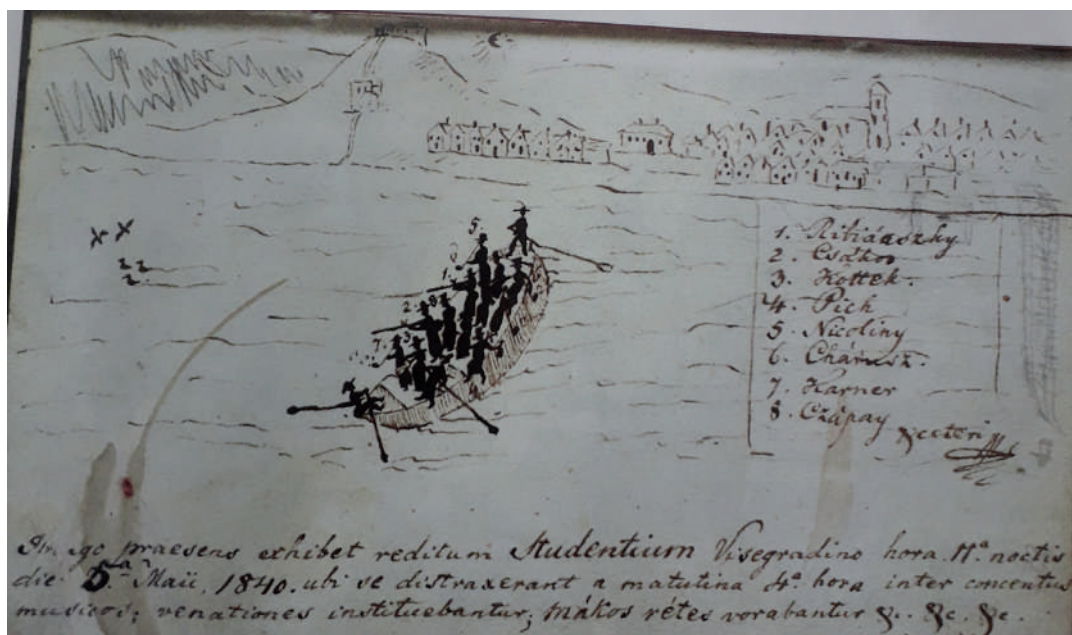 1. Ribiánszky
2. Csákos
3. Kottek.
4. Pich
5. Nicoliny
6. Chárusz.
7. Karner
8. Czápay
&ceteri
Imago praesens exhibet reditum Studentium Visegradino hora 11ª noctis
die 5ª Maii, 1840. ubi se distraxerant a matutina 4ª hora inter concentus
musicos; venationes instituebantur; mákos rétes vorabantur &c. &c. &c.